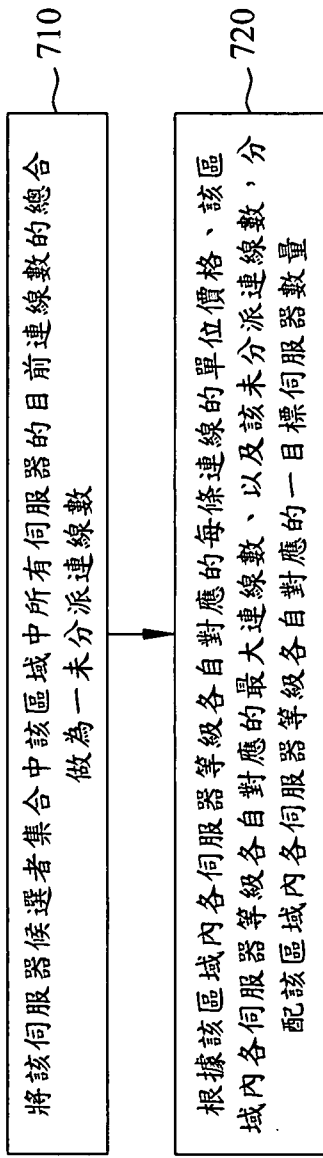 將該伺服器候選者集合中該區域中所有伺服器的目前連線數的總合
做為一未分派連線數
710
根據該區域內各伺服器等級各自對應的每條連線的單位價格、該區
域內各伺服器等級各自對應的最大連線數、以及該未分派連線數，分
配該區域內各伺服器等級各自對應的一目標伺服器數量
720